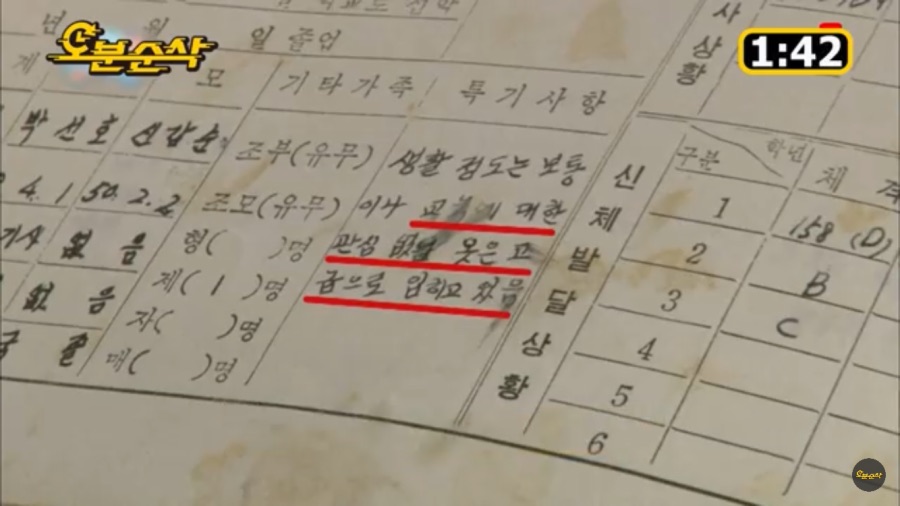 오분순삭
1:42
년 월 일 졸업
사
상
황
모 기타가족 특기사항
박선호 신갑순 조부(유무) 생활 정도는 보통
4.1 50.2.2 조모(유무) 이나 교육에 대한
없음 형( )명 관심 없널 옷은 고
없음 제( 1 )명 급으로 입히고 있음
자( )명
매( )명
신체발달상황
구분 학년 체격
1 158 (D)
2 B
3 C
4
5
6
오분순삭